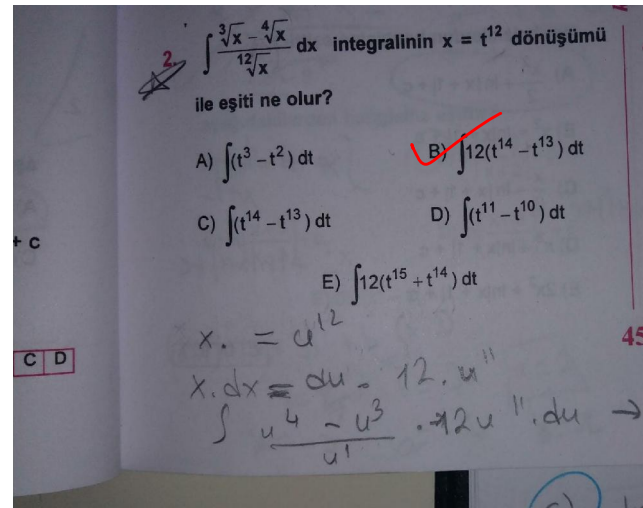 2. ∫ (∛x - ∜x) / ¹²√x dx integralinin x = t¹² dönüşümü
ile eşiti ne olur?
A) ∫(t³ - t²) dt
B) ∫12(t¹⁴ - t¹³) dt
C) ∫(t¹⁴ - t¹³) dt
D) ∫(t¹¹ - t¹⁰) dt
E) ∫12(t¹⁵ + t¹⁴) dt
+ c
C D
45
x. = u¹²
x.dx = du. 12. u¹¹
∫ (u⁴ - u³) / u¹ . 12u¹¹.du →